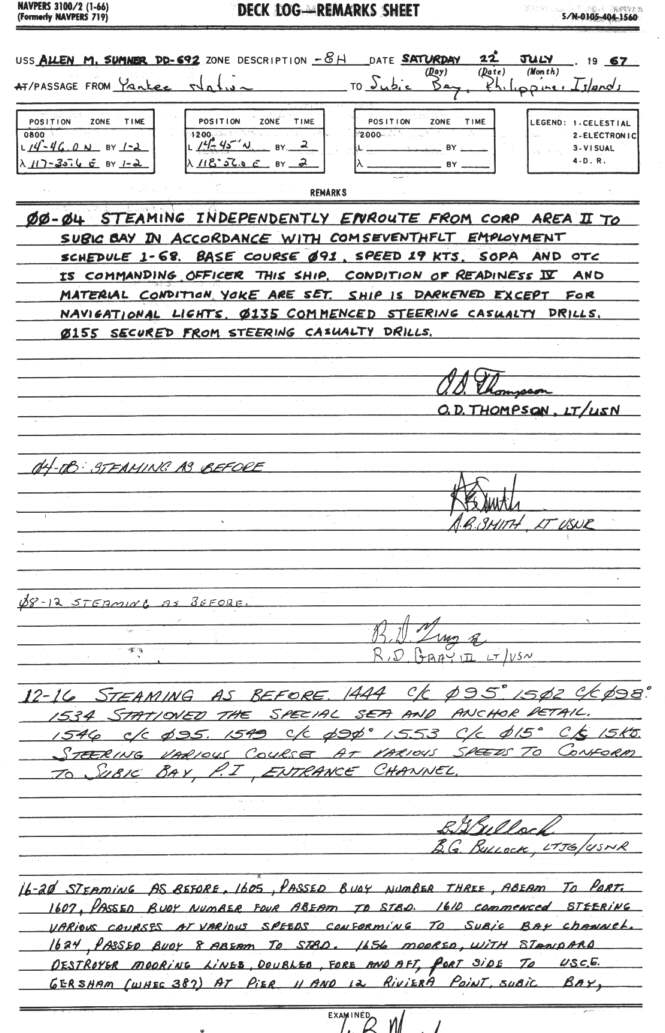 NAVPERS 3100/2 (1-66)
(Formerly NAVPERS 719)
DECK LOG—REMARKS SHEET
S/N-0105-404-1560
USS ALLEN M. SUMNER DD-692 ZONE DESCRIPTION -8H DATE SATURDAY 22 JULY , 19 67
(Day) (Date) (Month)
AT/PASSAGE FROM Yankee Station TO Subic Bay, Philippine Islands
POSITION ZONE TIME
0800
L 14°-46.0 N BY 1-2
λ 117-35.6 E BY 1-2
POSITION ZONE TIME
1200
L 14°-45' N BY 2
λ 118-56.0 E BY 2
POSITION ZONE TIME
2000
L BY
λ BY
LEGEND: 1-CELESTIAL
2-ELECTRONIC
3-VISUAL
4-D. R.
REMARKS
ØØ-Ø4 STEAMING INDEPENDENTLY ENROUTE FROM CORP AREA II TO
SUBIC BAY IN ACCORDANCE WITH COMSEVENTHFLT EMPLOYMENT
SCHEDULE 1-68. BASE COURSE Ø91, SPEED 19 KTS. SOPA AND OTC
IS COMMANDING OFFICER THIS SHIP. CONDITION OF READINESS IV AND
MATERIAL CONDITION YOKE ARE SET. SHIP IS DARKENED EXCEPT FOR
NAVIGATIONAL LIGHTS. Ø135 COMMENCED STEERING CASUALTY DRILLS.
Ø155 SECURED FROM STEERING CASUALTY DRILLS.
O.D. Thompson
O.D. THOMPSON, LT/USN
Ø4-Ø8: STEAMING AS BEFORE
A.B. Smith
A.B. SMITH, LT USNR
Ø8-12 STEAMING AS BEFORE.
R.D. Gray II
R.D. GRAY II LT/USN
12-16 STEAMING AS BEFORE. 1444 C/C Ø95° 15Ø2 C/C Ø98°
1534 STATIONED THE SPECIAL SEA AND ANCHOR DETAIL.
1546 C/C Ø95. 1549 C/C Ø9Ø° 1553 C/C Ø15° C/S 15KTS.
STEERING VARIOUS COURSES AT VARIOUS SPEEDS TO CONFORM
TO SUBIC BAY, P.I, ENTRANCE CHANNEL.
B.G. Bullock
B.G. BULLOCK, LTJG/USNR
16-2Ø STEAMING AS BEFORE. 16Ø5, PASSED BUOY NUMBER THREE, ABEAM TO PORT.
16Ø7, PASSED BUOY NUMBER FOUR ABEAM TO STBD. 161Ø COMMENCED STEERING
VARIOUS COURSES AT VARIOUS SPEEDS CONFORMING TO SUBIC BAY CHANNEL.
1624, PASSED BUOY 8 ABEAM TO STBD. 1656 MOORED, WITH STANDARD
DESTROYER MOORING LINES, DOUBLED, FORE AND AFT, PORT SIDE TO USCG.
GERSHAM (WHEC 387) AT PIER 11 AND 12 RIVIERA POINT, SUBIC BAY,
EXAMINED